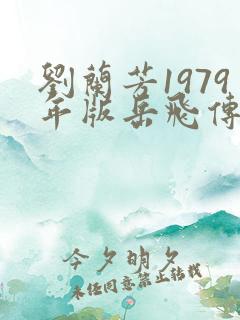 劉蘭芳1979
年版岳飛傳
今夕明夕
未经同意禁止转载